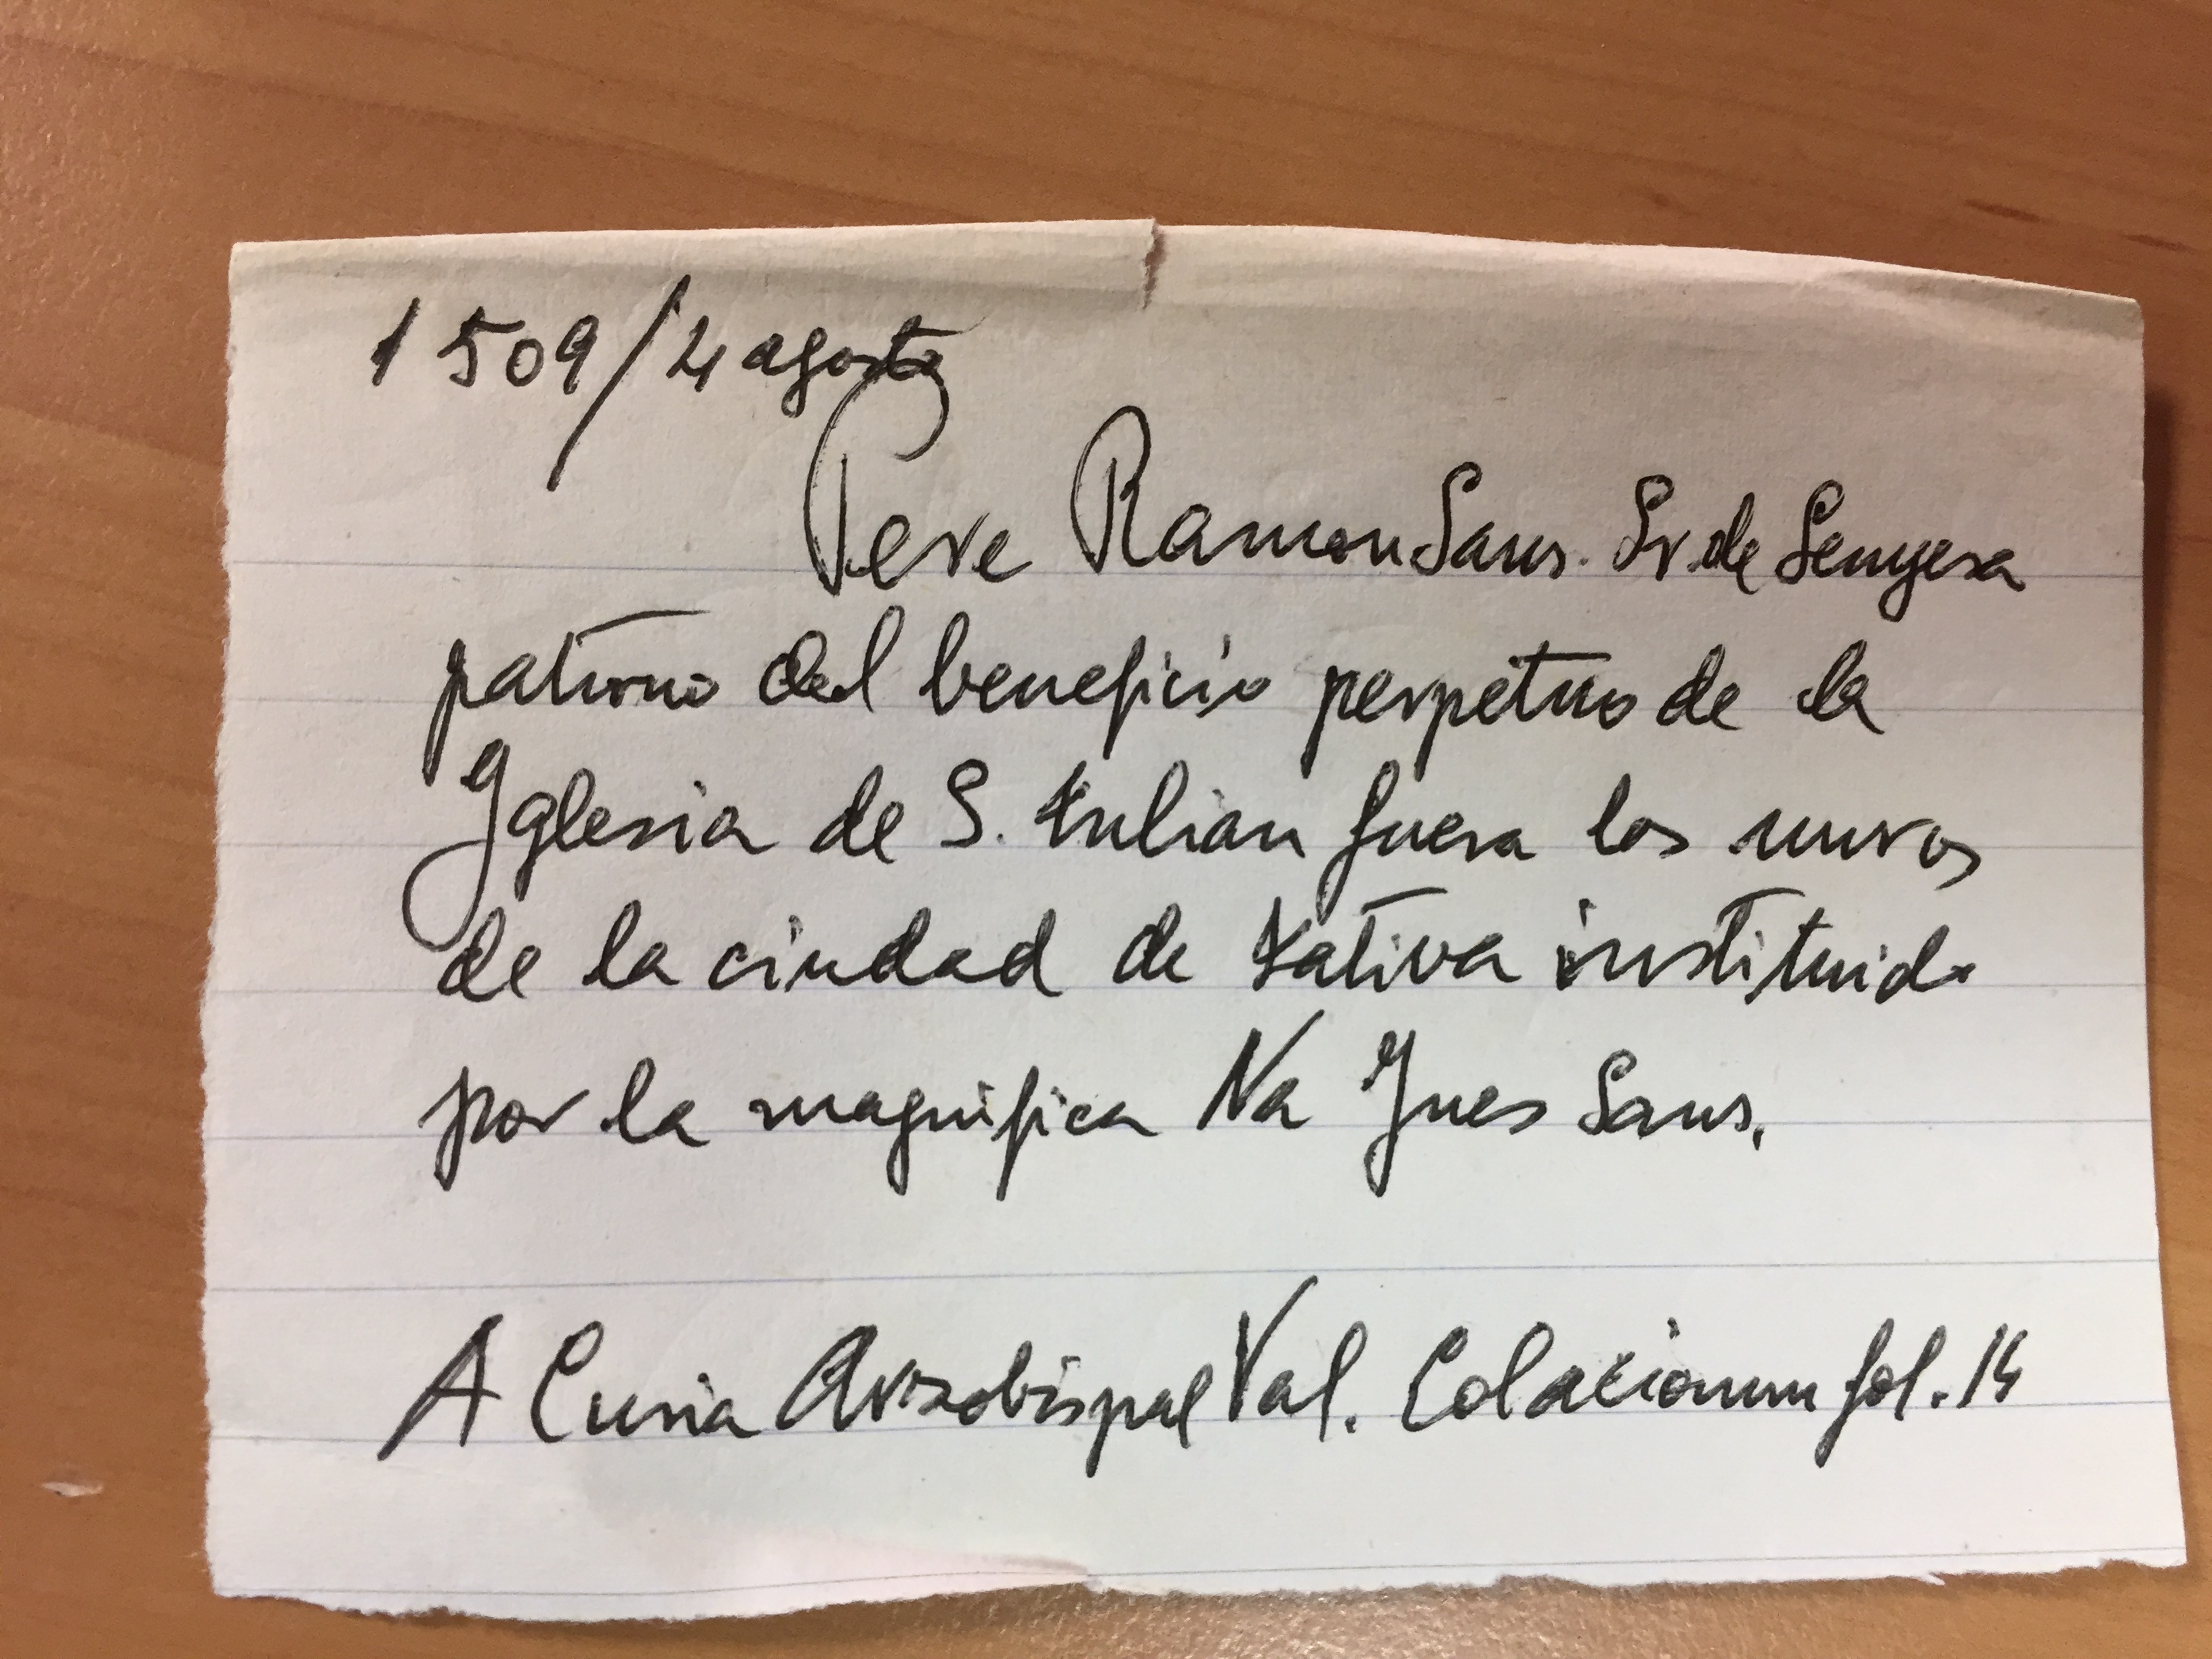 1509/4 agosto
Pere Ramon Sans. Sr. de Senyera
patrono del beneficio perpetuo de la
Iglesia de S. Xulian fuera los muros
de la ciudad de Xativa instituido
por la magnifica Na Ynes Sans.
A Curia Arzobispal Val. Colacionum fol. 14